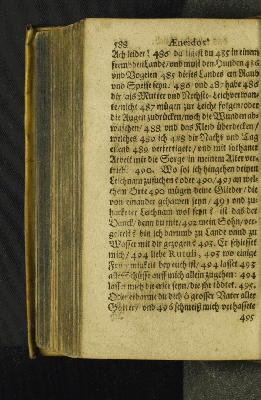 588 Æneidos
Ach leider! 486 du ligest du 485 in einem
frembden Lande/ und must den Hunden 486
und Vogelen 485 dieses Landes ein Raub
und Speise seyn. 486 und 487 habe 486
dir/ als Mutter und Nechste Leichverwan-
te/ nicht 487 mügen zur Leiche folgen/ oder
die Augen zudrücken/ noch die Wunden ab-
waschen/ 488 und das Kleid überdecken/
welches 489 ich 488 dir Nacht und Tag
eilend 489 verfertigete/ und mit solchaner
Arbeit mir die Sorge in meinem Alter ver-
trieb. 490. Wo sol ich hingehen deinen
Leichnam zusuchen? oder 490/ 491 an wel-
chem Orte 490 mügen deine Glieder/ die
von einander gehawen seyn/ 491 und zu-
hackerter Leichnam wol seyn? ist daß der
Danck/ denn du mir/ 492 mein Sohn/ ver-
geltest? bin ich darumb zu Lande unnd zu
Wasser mit dir gezogen? 493. Er schiesset
mich/ 494 liebe Rutuli, 493 wo einige
Frommigkeit bey euch ist/ 494 lasset 493
alle Schüsse auff mich allein zugehen: 494
lasset mich die erste seyn/ die ihr tödtet. 495.
Oder erbarme du dich ô grosser Vater aller
Götter/ und 496 schmeiß mich verhassete
495